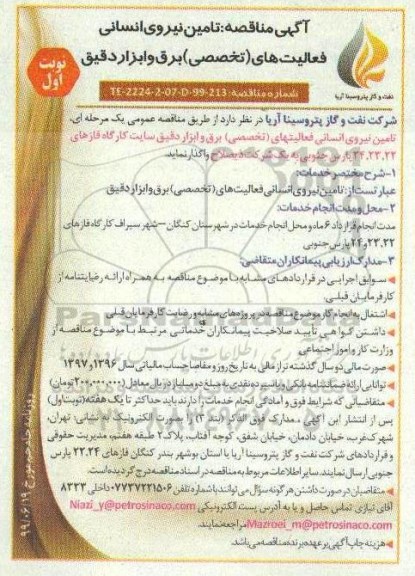 آگهی مناقصه: تامین نیروی انسانی
فعالیت های (تخصصی) برق و ابزار دقیق
نوبت
اول
نفت و گاز پتروسینا آریا
شماره مناقصه: TE-2224-2-07-D-99-213
شرکت نفت و گاز پتروسینا آریا در نظر دارد از طریق مناقصه عمومی یک مرحله ای،
تامین نیروی انسانی فعالیتهای (تخصصی) برق و ابزار دقیق سایت کارگاه فازهای
۲۲،۲۳، ۲۴ پارس جنوبی به یک شرکت ذیصلاح واگذار نماید.
۱-شرح مختصر خدمات:
عبارتست از: تامین نیروی انسانی فعالیت های (تخصصی) برق و ابزار دقیق
۲-محل و مدت انجام خدمات:
مدت انجام قرارداد ۶ ماه و محل انجام خدمات در شهرستان کنگان – شهر سیراف کارگاه فازهای
۲۲،۲۳ و ۲۴ پارس جنوبی
۳-مدارک ارزیابی پیمانکاران متقاضی:
سوابق اجرایی در قراردادهای مشابه با موضوع مناقصه به همراه ارائه رضایتنامه از
کارفرمایان قبلی.
اشتغال به انجام کار موضوع مناقصه در پروژه های مشابه و رضایت کارفرمایان قبلی
داشتن گواهی تأیید صلاحیت پیمانکاران خدماتی مرتبط با موضوع مناقصه از
وزارت کار و امور اجتماعی
صورت مالی دو سال گذشته تراز ماقبل به تاریخ روز و مفاصا حساب مالیاتی سال ۱۳۹۶ و ۱۳۹۷
توانایی ارائه ضمانتنامه بانکی و یا سپرده نقدی به مبلغ دو میلیارد ریال معادل (۲۰۰،۰۰۰،۰۰۰ تومان)
متقاضیانی که شرایط فوق و آمادگی انجام خدمات را دارند باید حداکثر تا یک هفته (نوبت اول)
پس از انتشار این آگهی، مدارک فوق الذکر (بند ۳) را بصورت الکترونیک به نشانی: تهران،
شهرک غرب، خیابان دادمان، خیابان شفق، کوچه آفتاب، پلاک ۲ طبقه هفتم، مدیریت حقوقی
و قراردادهای شرکت نفت و گاز پتروسینا آریا یا استان بوشهر بندر کنگان فازهای ۲۲،۲۴ پارس
جنوبی ارسال نمایند. سایر اطلاعات مربوط به مناقصه در اسناد مناقصه درج گردیده است.
متقاضیان در صورت داشتن هر گونه سؤال می توانند با شماره تلفن ۰۷۷۳۷۲۲۱۵۰۶ داخلی ۸۳۳۳
آقای نیازی تماس حاصل و یا به آدرس پست الکترونیکی Niazi_y@petrosinaco.com
Mazroei_m@petrosinaco.com مراجعه نمایند.
هزینه چاپ آگهی بر عهده برنده مناقصه می باشد.
۹۹/۰۶/۱۹